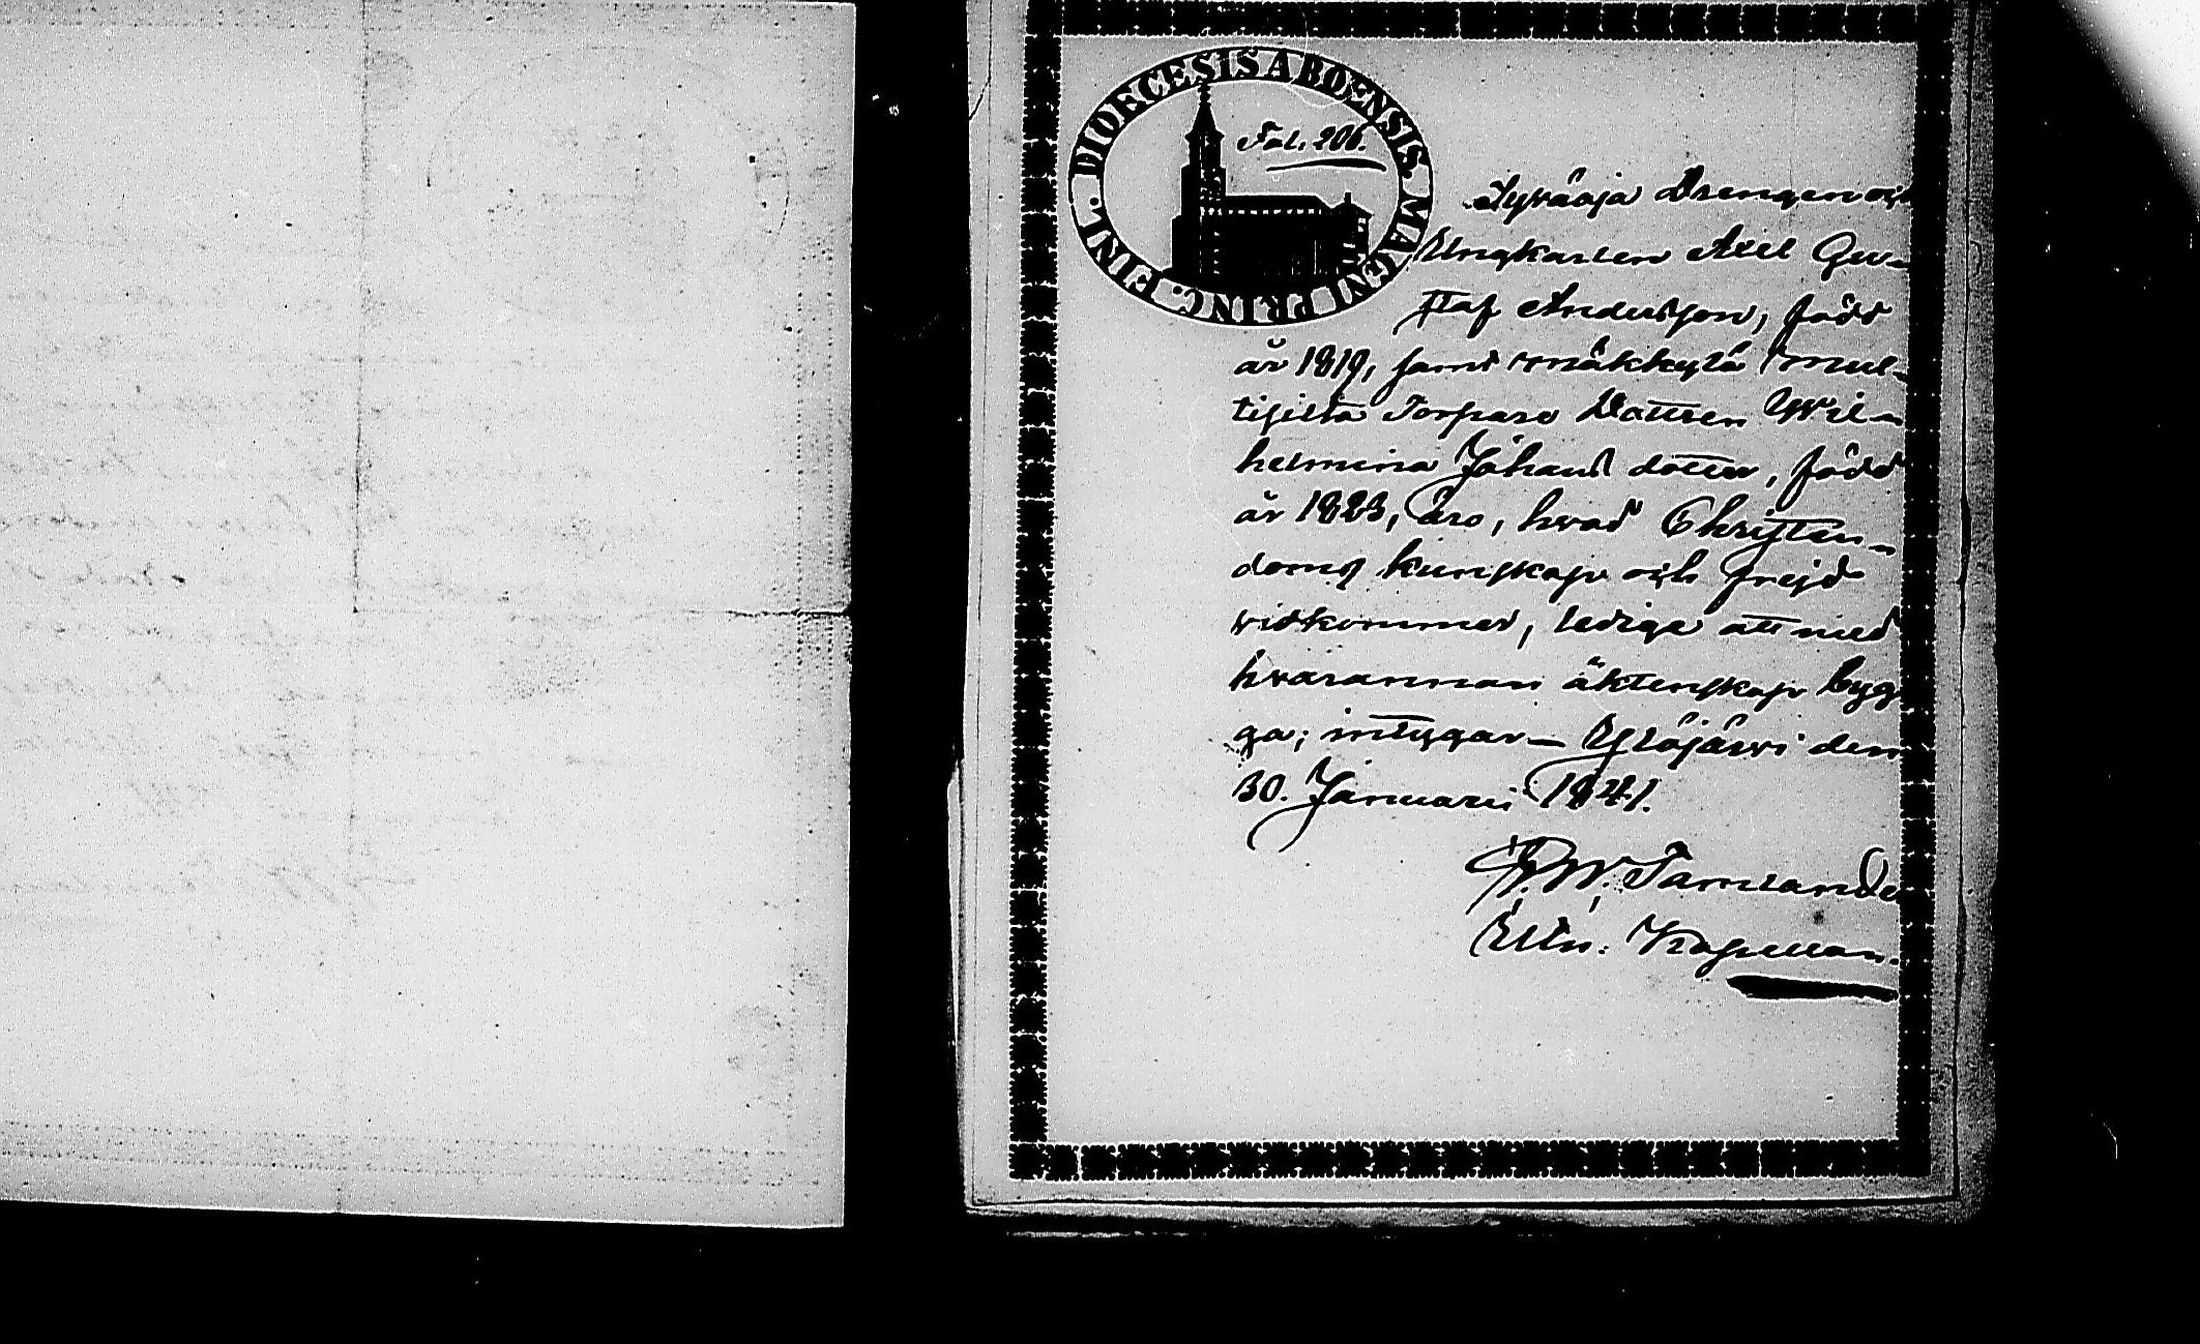 DIOECESIS ABOENSIS. MAGNI PRINC. FINL.
Fol. 206.
Drengen och
Ungkarlen Axel Gus-
staf Andersson, född
år 1819, samt Mäkkylä
Torpare Dottren Wil-
helmina Johans dotter, född
år 1823, äro, hvad Christen-
doms kunskap och frejd
vidkommer, lediga att med
hvarannan äktenskap byg-
ga; intygar — Ylöjärvi den
30. Januarii 1841.
Kapellan.